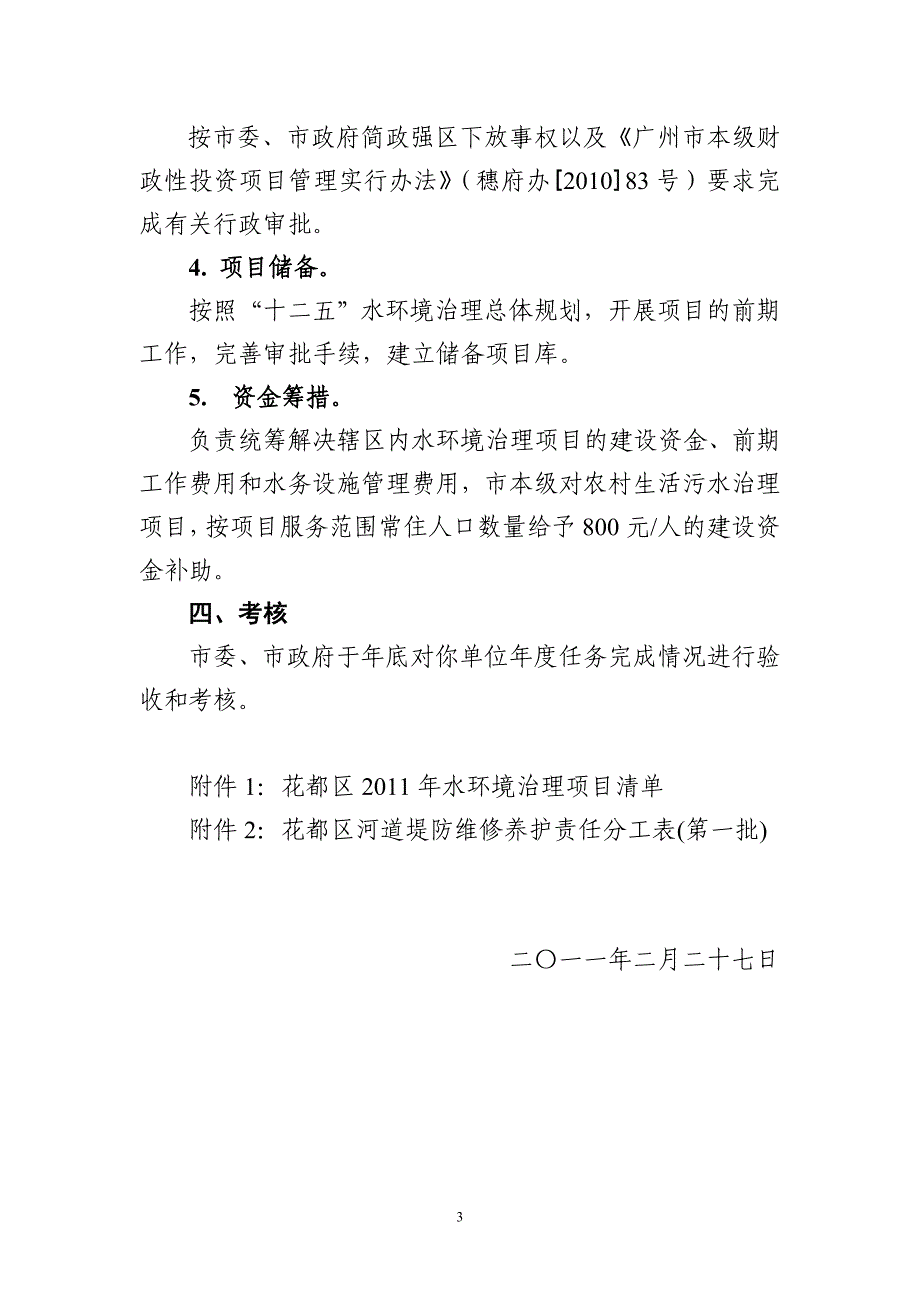 按市委、市政府简政强区下放事权以及《广州市本级财
政性投资项目管理实行办法》（穗府办[2010]83 号）要求完
成有关行政审批。
4. 项目储备。
按照“十二五”水环境治理总体规划，开展项目的前期
工作，完善审批手续，建立储备项目库。
5. 资金筹措。
负责统筹解决辖区内水环境治理项目的建设资金、前期
工作费用和水务设施管理费用，市本级对农村生活污水治理
项目，按项目服务范围常住人口数量给予 800 元/人的建设资
金补助。
四、考核
市委、市政府于年底对你单位年度任务完成情况进行验
收和考核。
附件 1：花都区 2011 年水环境治理项目清单
附件 2：花都区河道堤防维修养护责任分工表(第一批)
二〇一一年二月二十七日
3